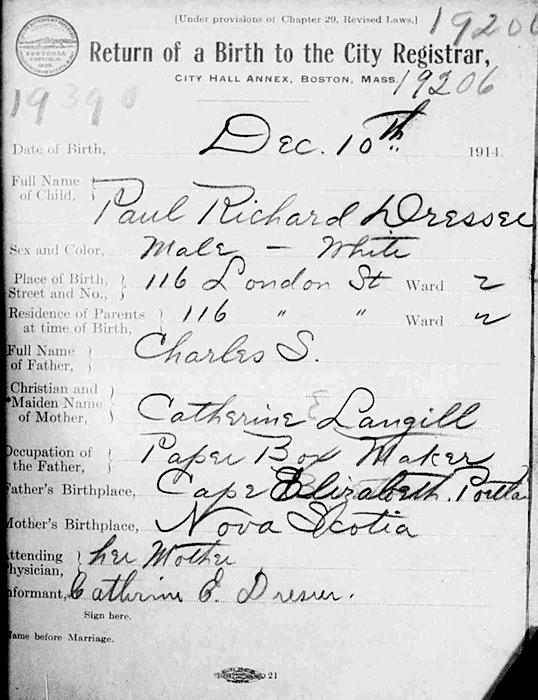 [Under provisions of Chapter 29, Revised Laws.] 19206
Return of a Birth to the City Registrar,
CITY HALL ANNEX, BOSTON, MASS. 19206
19390
Date of Birth, Dec. 10th 1914.
Full Name
of Child, Paul Richard Dresser
Sex and Color, Male – White
Place of Birth, 116 London St Ward 2
Street and No.,
Residence of Parents 116 " " Ward 2
at time of Birth,
Full Name Charles S.
of Father,
Christian and
*Maiden Name
of Mother, Catherine E Langill
Occupation of Paper Box Maker
the Father,
Father's Birthplace, Cape Elizabeth, Portla
Mother's Birthplace, Nova Scotia
Attending her Mother
Physician,
Informant, Catherine E. Dresser.
Sign here.
Name before Marriage.
21